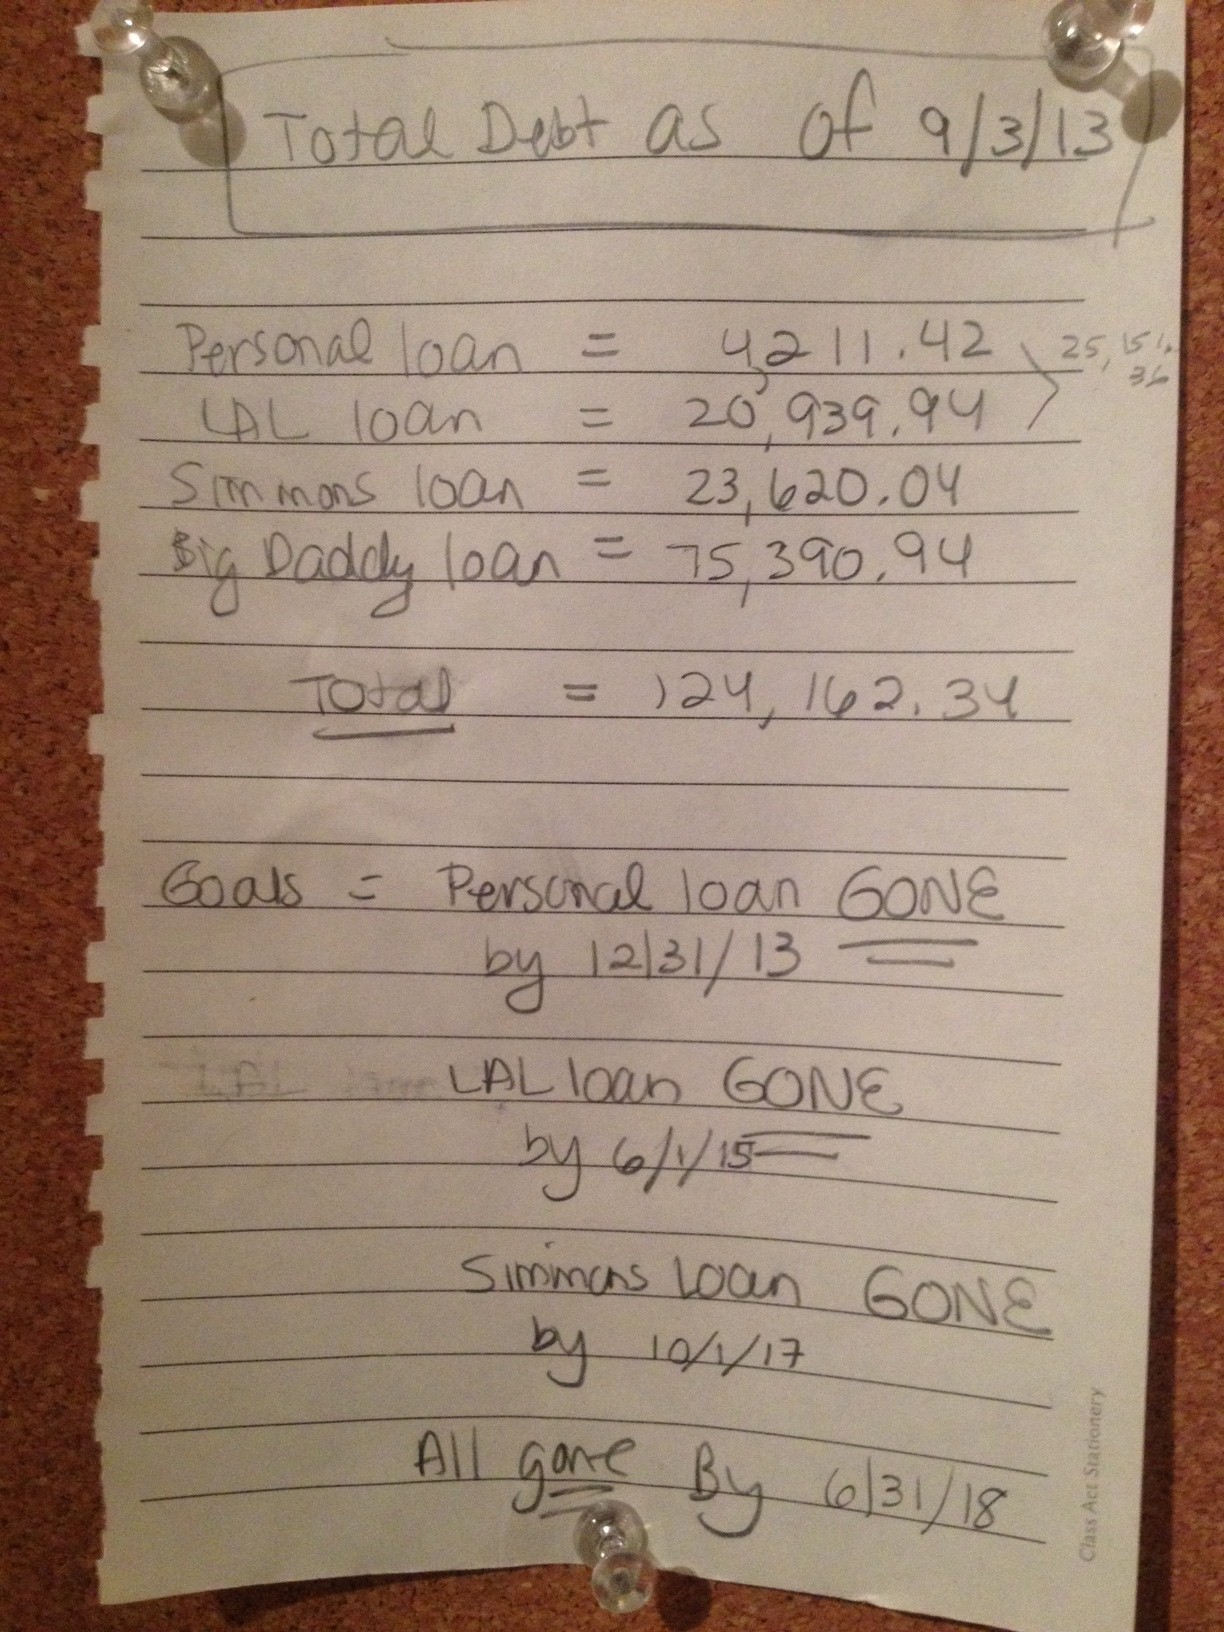 Total Debt as of 9/3/13
Personal loan = 4,211.42
25,151.
36
LAL loan = 20,939.94
Simmons loan = 23,620.04
Big Daddy loan = 75,390.94
Total = 124,162.34
Goals = Personal loan GONE
by 12/31/13
LAL loan GONE
by 6/1/15
Simmons Loan GONE
by 10/1/17
All gone By 6/31/18
Class Act Stationery